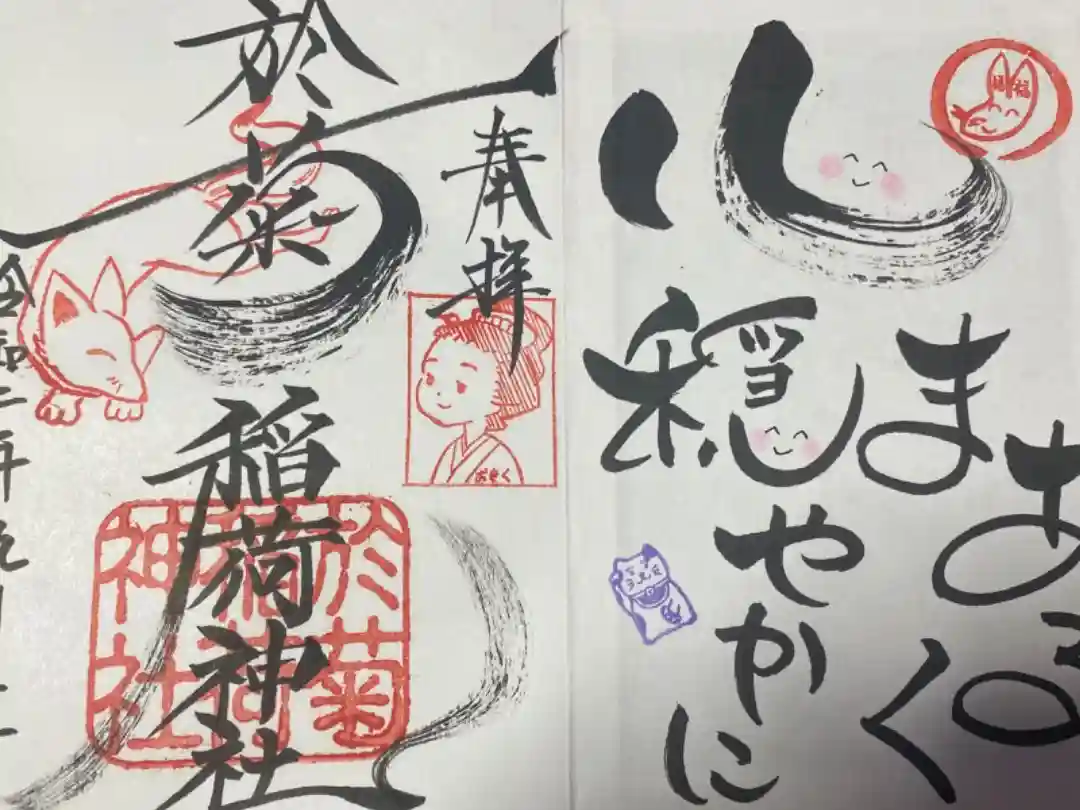 心
まあるく
穏やかに
福
奉拝
おきく
於菊稲荷神社
於菊稲荷神社
令和二年九月